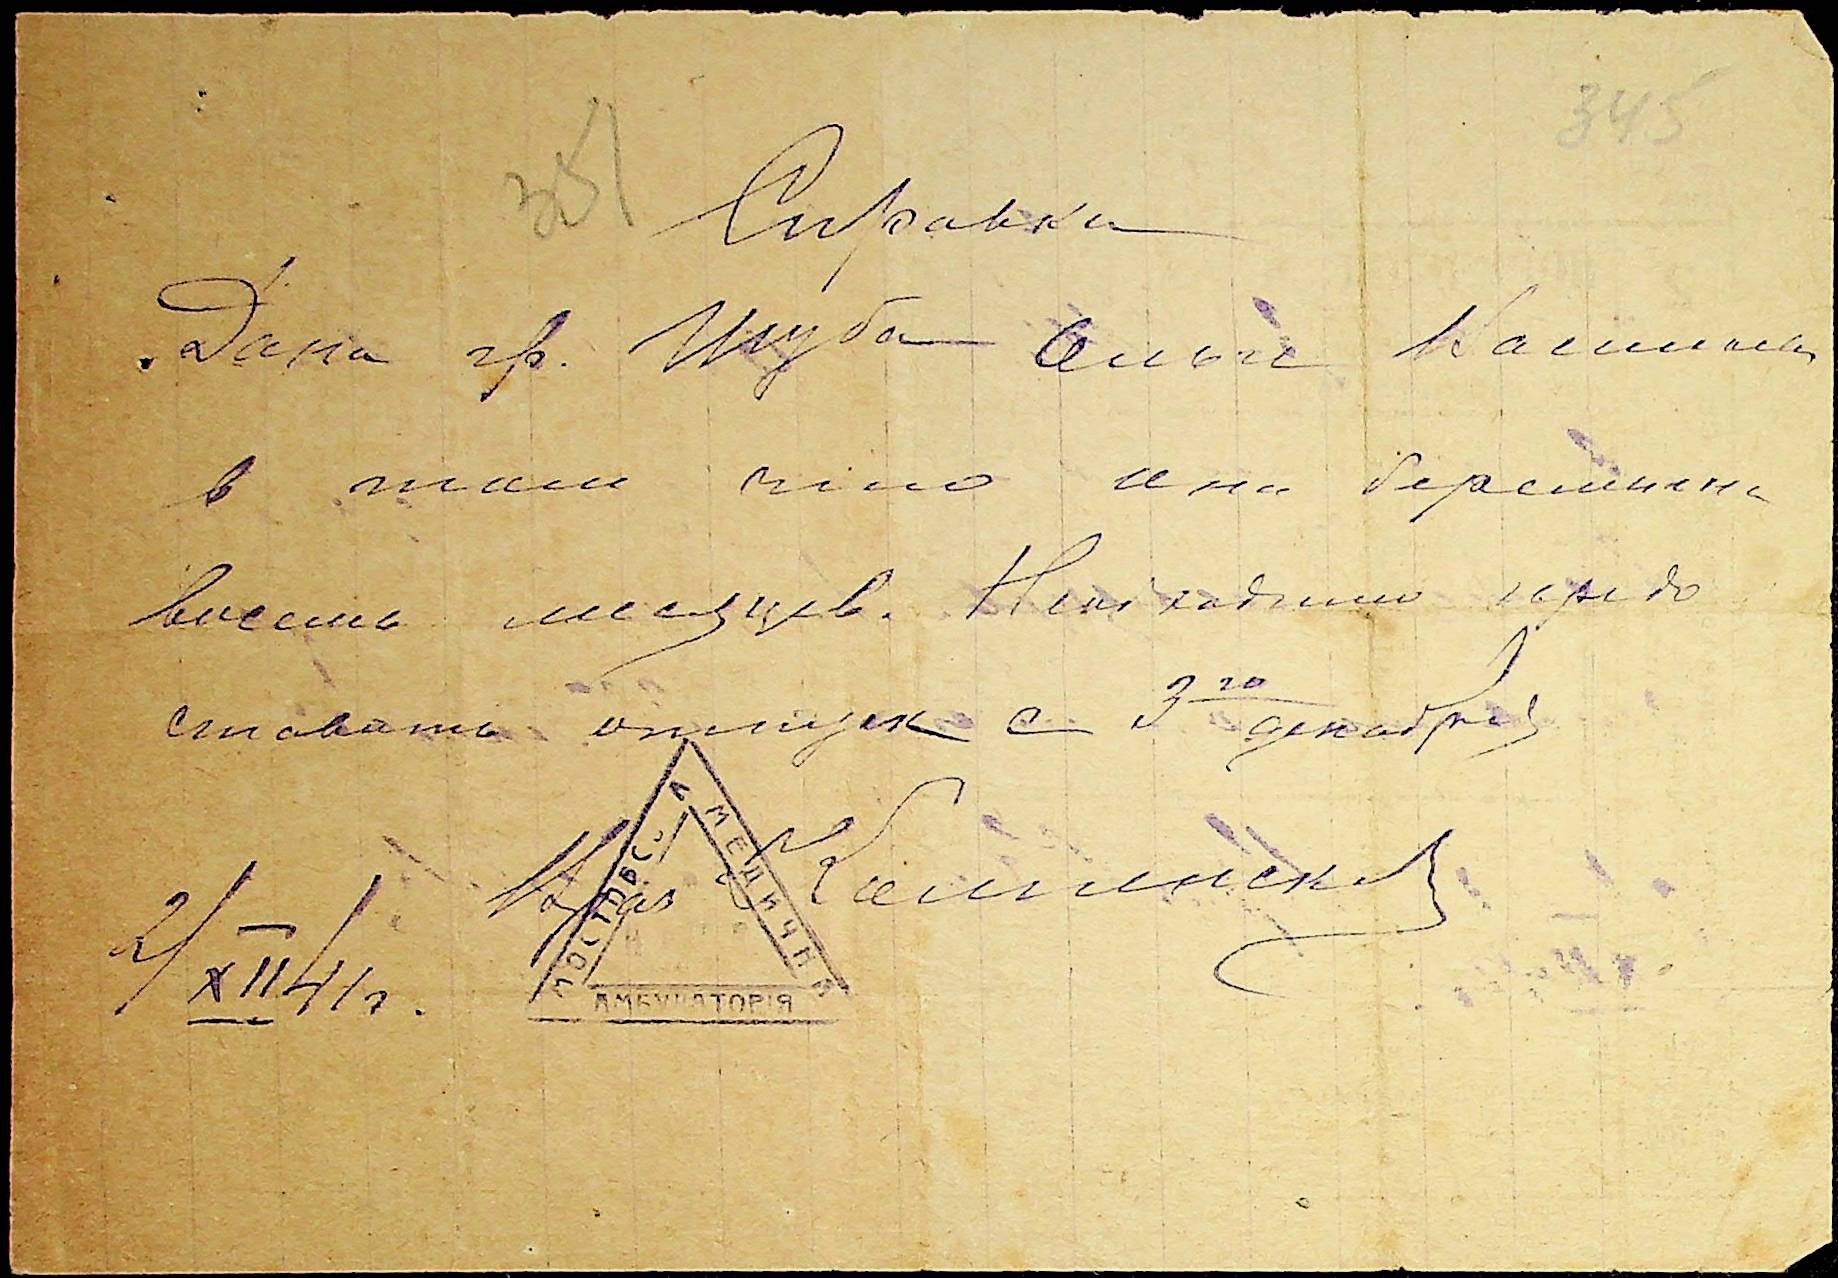 345
351
Справка
Дана гр. Шуба Ольге
в том что она беременна
восемь месяцев. Необходимо предо
ставить отпуск с 3го декабря
Врач Каминский
2/XII 41г.
МЕДИЧНА
АМБУЛАТОРІЯ